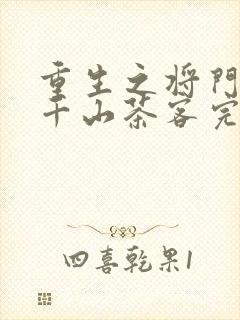 重生之将门
千山茶客完
四喜乾果1